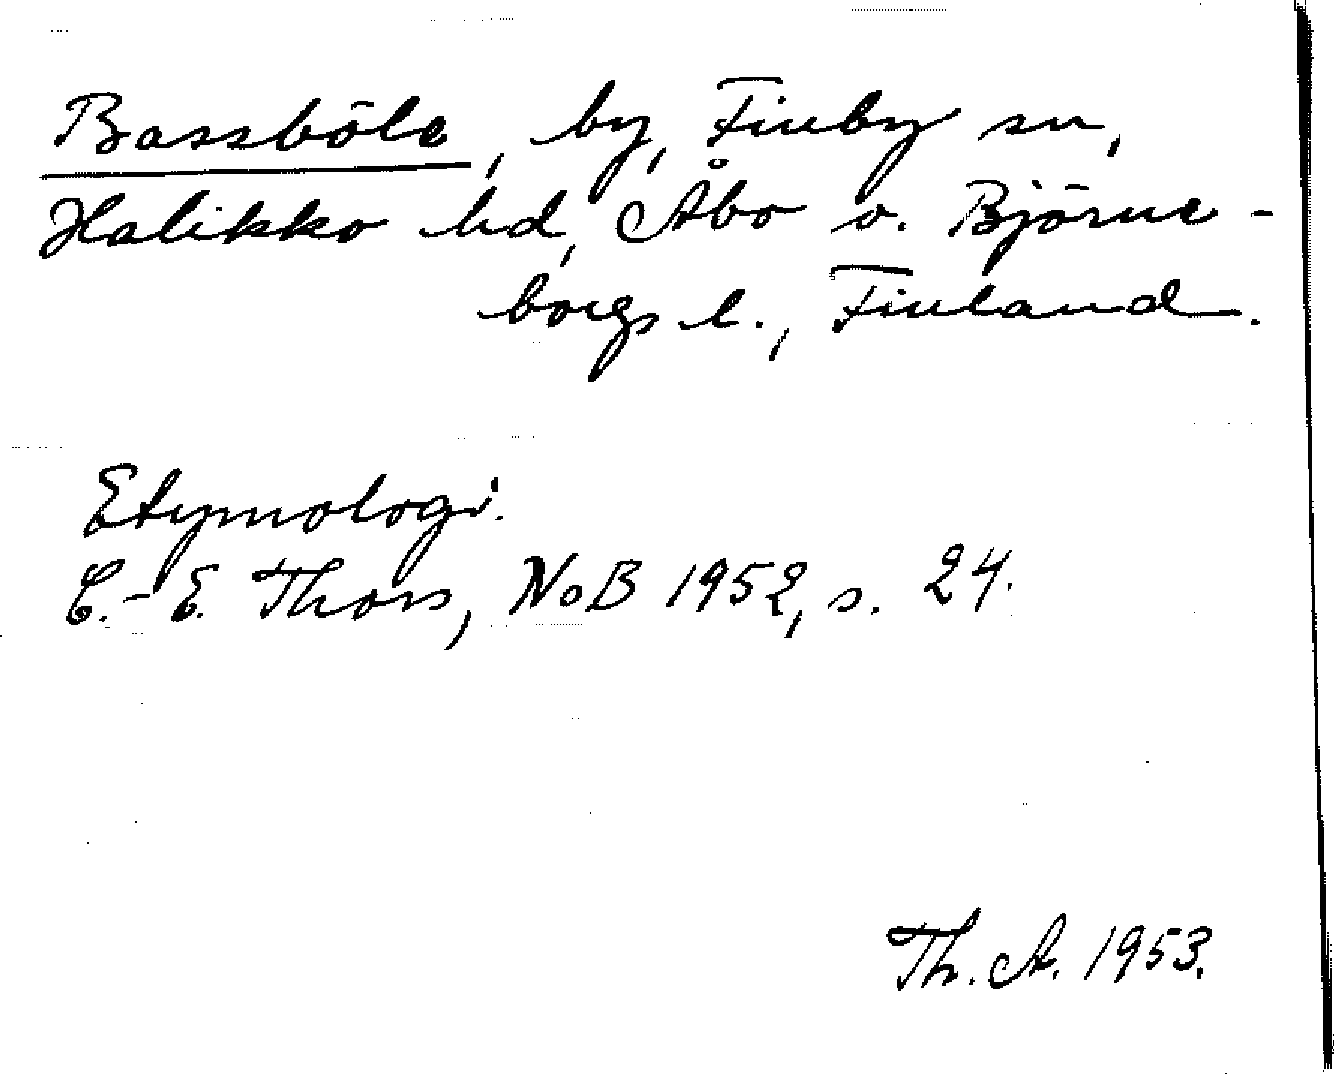 Bassböle, by, Finby sn,
Halikko hd, Åbo o. Björne-
borgs l., Finland.
Etymologi.
C.-E. Thors, NoB 1952, s. 24.
Th. A. 1953.